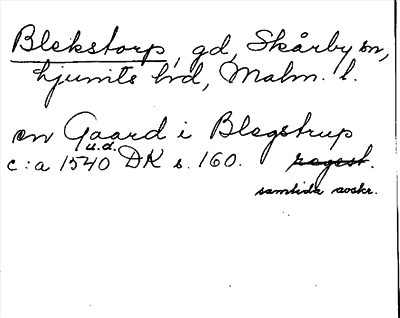 Blekstorp, gd, Skårby sn,
Ljunits hd, Malm. l.
en Gaard i Blegstrup
u.d.
c:a 1540 DK s. 160. regest.
samtida avskr.